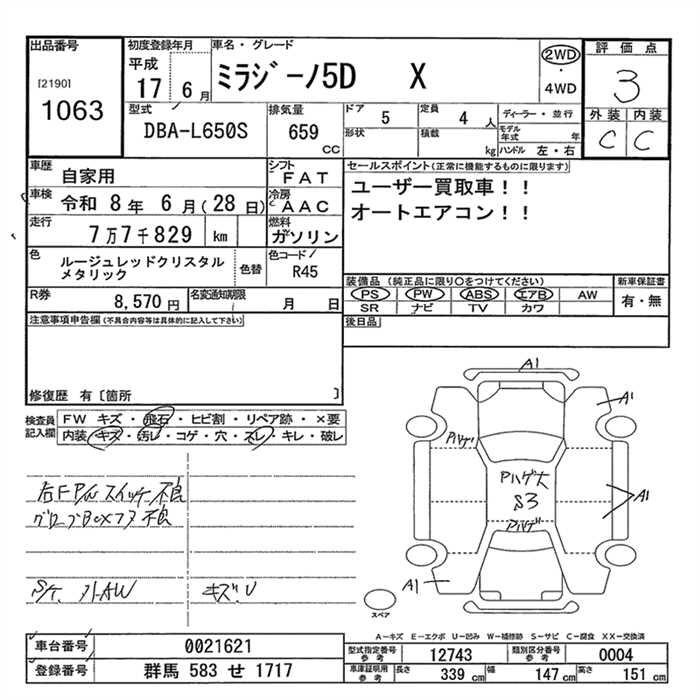 出品番号
[2190]
1063
初度登録年月
平成
17 6月
車名・グレード
ミラジーノ5D X
2WD
・
4WD
評価点
3
外装 内装
C C
型式
DBA-L650S
排気量
659
CC
ドア 5
定員 4 人
形状
積載 kg
ディーラー・並行
モデル年式 年
ハンドル 左・右
車歴
自家用
シフト
FAT
車検
令和 8年 6月(28日)
冷房
AAC
走行
7万7千829 km
燃料
ガソリン
色
ルージュレッドクリスタル
メタリック
色替
色コード
R45
R券
8,570円
名変通知期限
月 日
セールスポイント(正常に機能するものに限ります)
ユーザー買取車!!
オートエアコン!!
装備品(純正品に限り○をつけてください)
PS PW ABS エアB AW
SR ナビ TV カワ
新車保証書
有・無
後日品
注意事項申告欄(不具合内容等は具体的に記入して下さい)
修復歴 有〔箇所 〕
検査員
記入欄
FW キズ・飛石・ヒビ割・リペア跡・×要
内装 キズ・汚レ・コゲ・穴・スレ・キレ・破レ
右FP/W スイッチ不良
グローブBOXフタ不良
S/T. 外AW
キズU
A1
A1
Pハゲ
Pハゲ大
S3
Pハゲ
A1
A1
スペア
A―キズ E―エクボ U―凹み W―補修跡 S―サビ C―腐食 XX―交換済
車台番号
0021621
登録番号
群馬 583 せ 1717
型式指定番号
参考
12743
類別区分番号
参考
0004
車庫証明用
参考
長さ 339 cm
幅 147 cm
高さ 151 cm